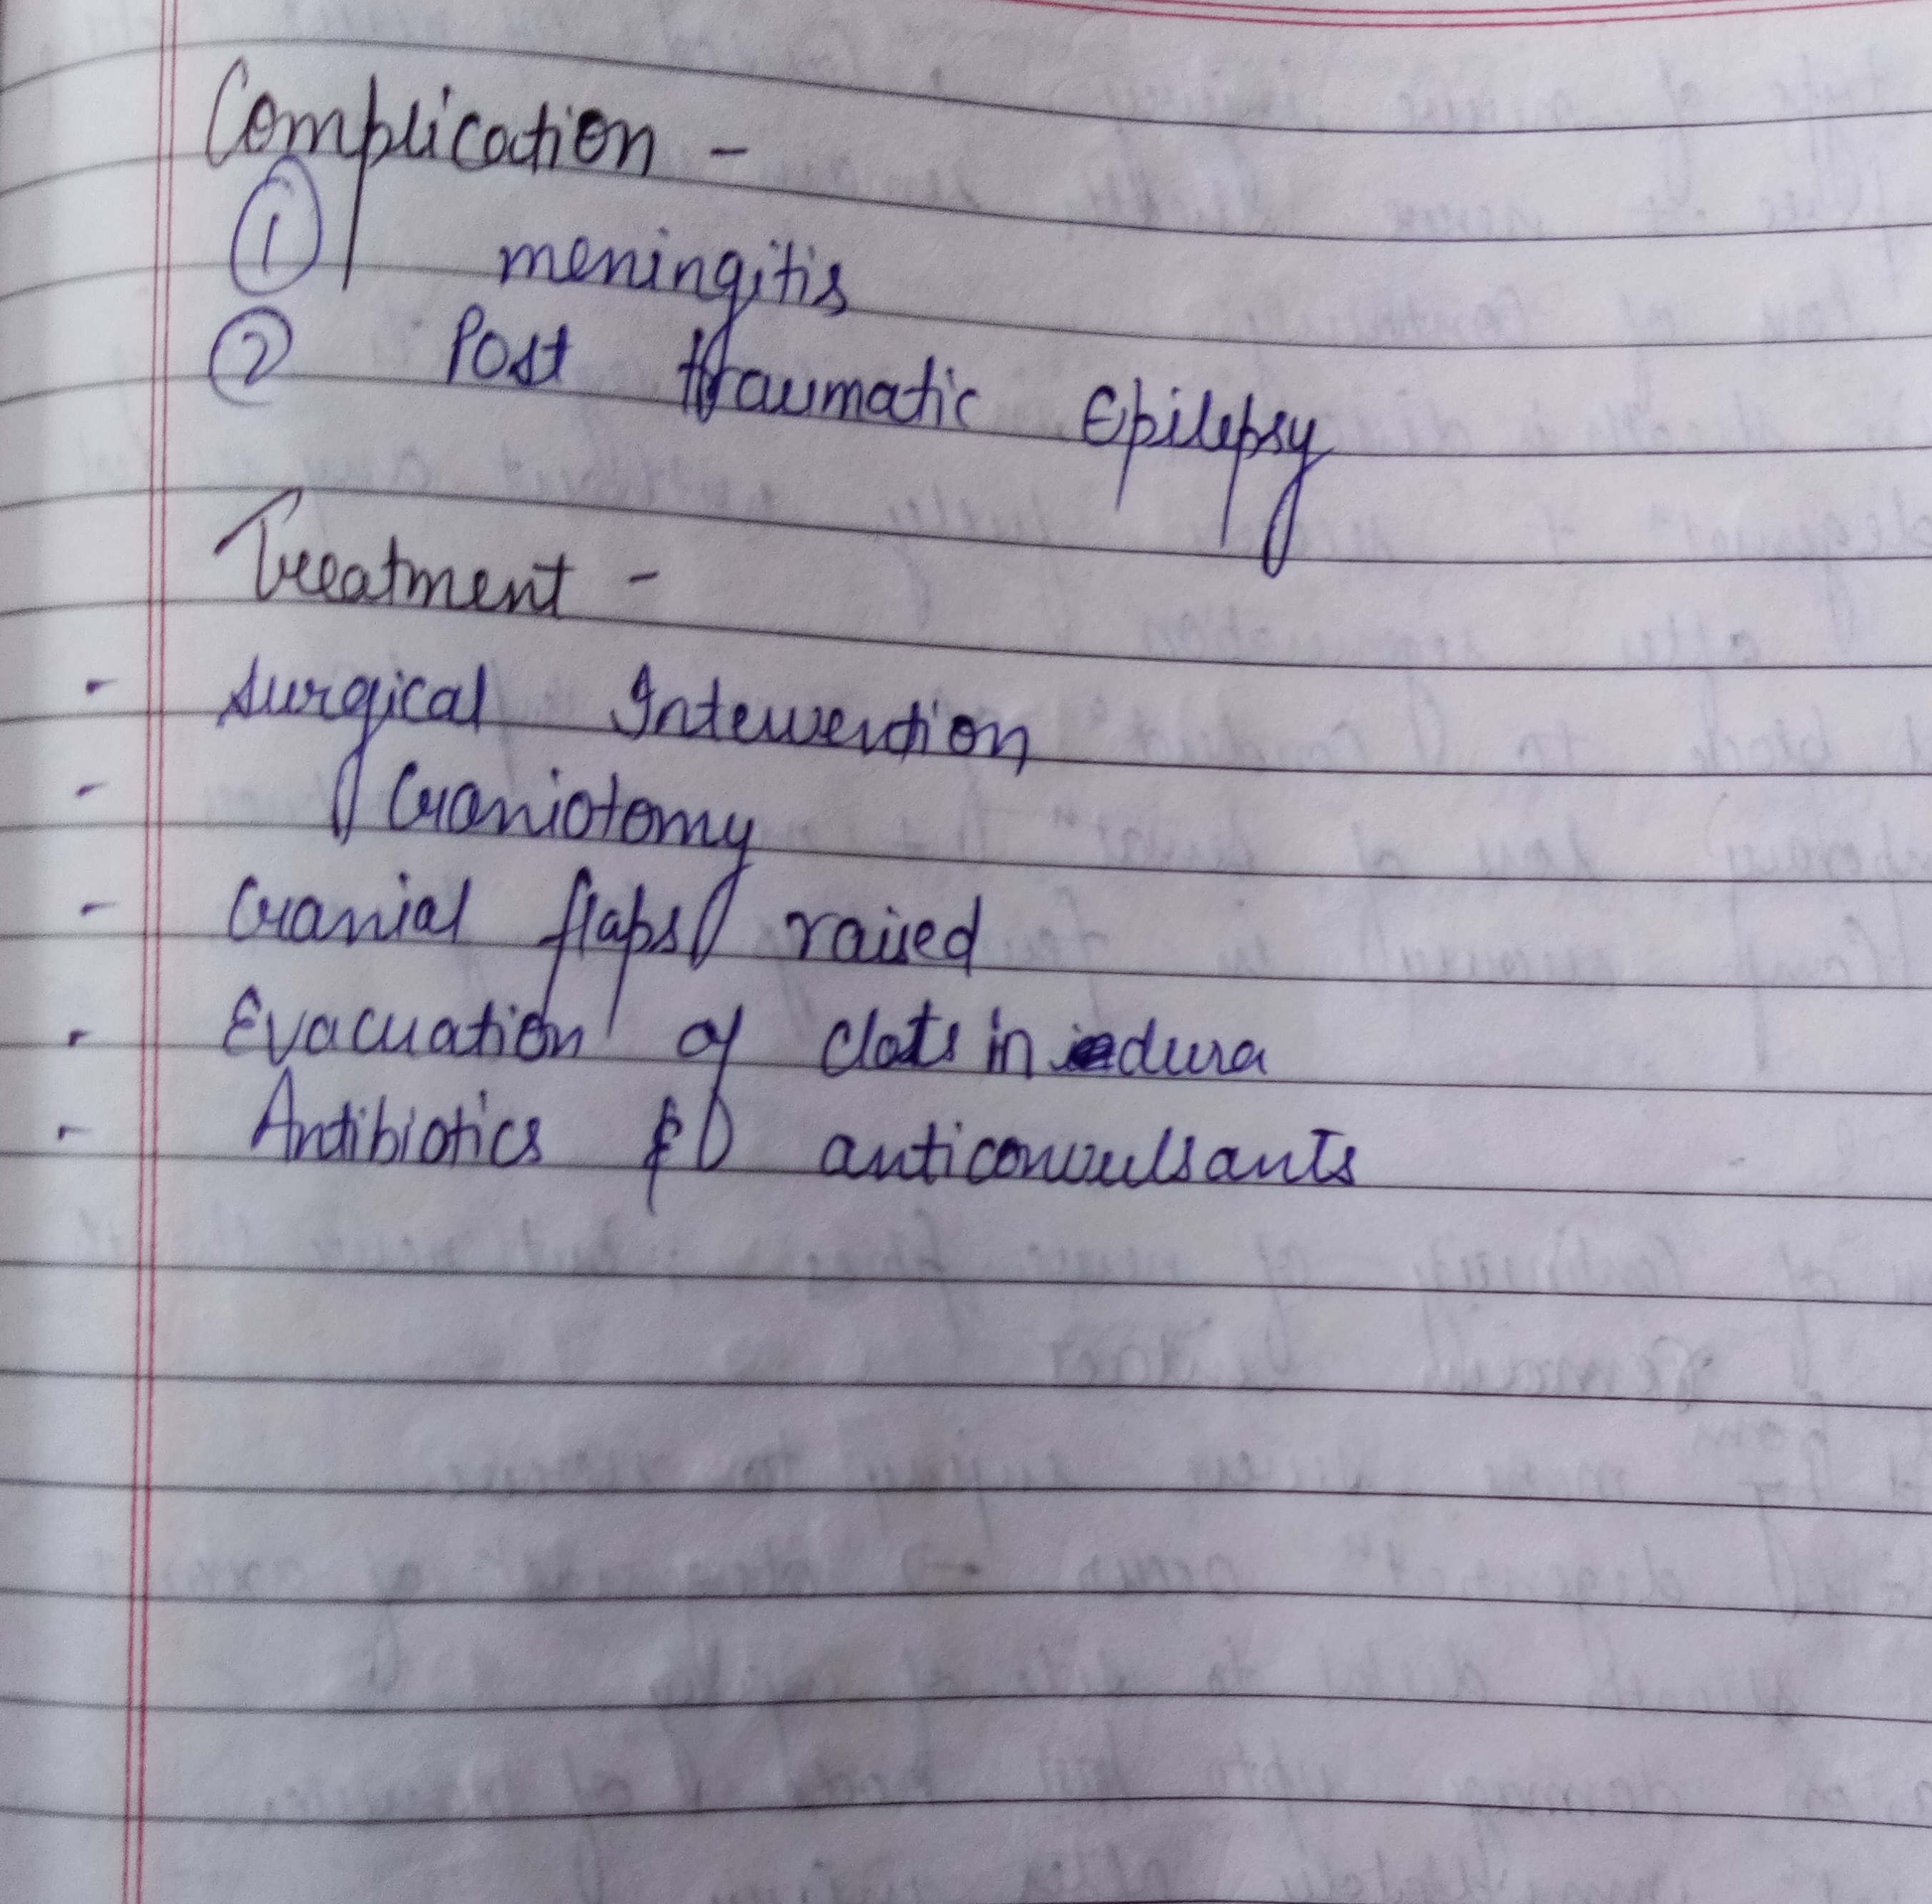 Complication -
① meningitis
② Post traumatic Epilepsy
Treatment -
- Surgical Intervention
- Craniotomy
- Cranial flaps raised
- Evacuation of clots in dura
- Antibiotics & anticonvulsants